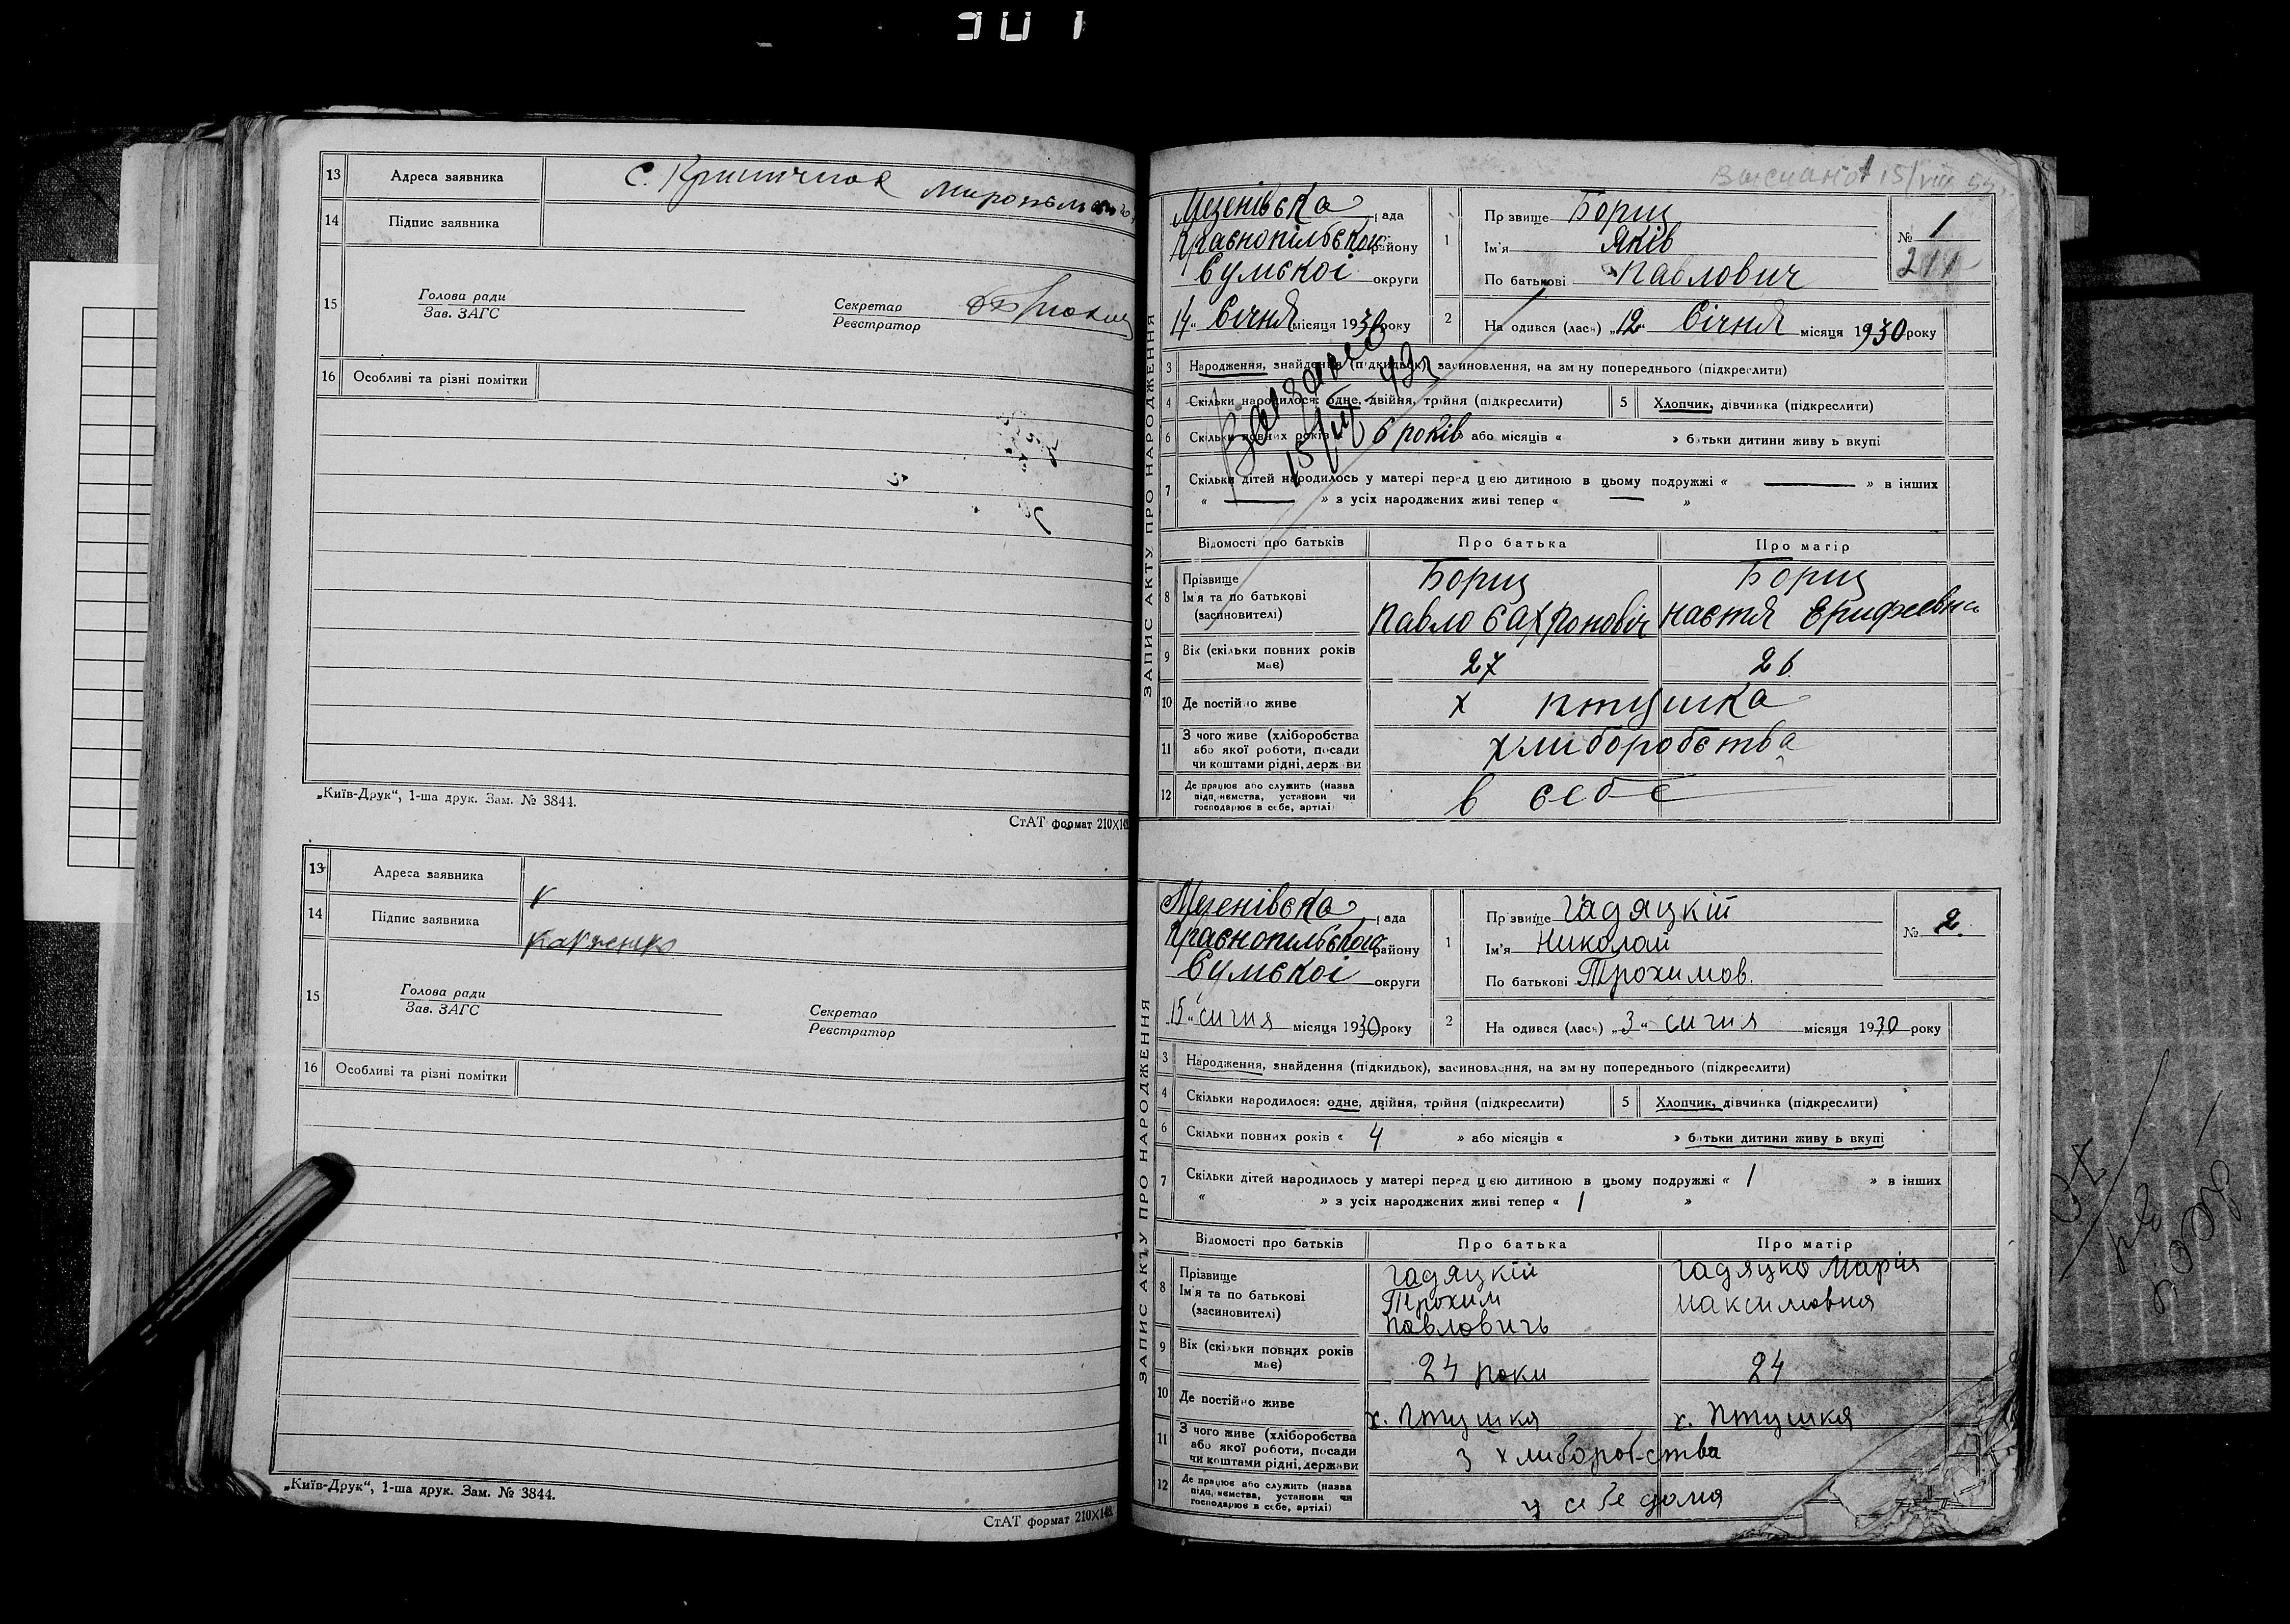 301
13 Адреса заявника С. Криничное Миропильск
14 Підпис заявника
15 Голова ради
Зав. ЗАГС
Секретар
Реєстратор
16 Особливі та різні помітки
„Київ-Друк“, 1-ша друк. Зам. № 3844.
СтАТ формат 210×148
13 Адреса заявника
14 Підпис заявника
15 Голова ради
Зав. ЗАГС
Секретар
Реєстратор
16 Особливі та різні помітки
„Київ-Друк“, 1-ша друк. Зам. № 3844.
СтАТ формат 210×148
ЗАПИС АКТУ ПРО НАРОДЖЕННЯ
15/VIII
Мезенівска рада
Краснопільскои району
Сумскоі округи
14 „ Січня місяця 1930 року
1 Прізвище Борщ
Ім'я Яків
По батькові Павлович
№ 1
211
2 Народився (лась) „12“ Січня місяця 1930 року
3 Народження, знайдення (підкидьок), засиновлення, на зміну попереднього (підкреслити)
4 Скільки народилося: одне, двійня, трійня (підкреслити)
5 Хлопчик, дівчинка (підкреслити)
6 Скільки повних років 6 років або місяців « » батьки дитини живуть вкупі
7 Скільки дітей народилось у матері перед цією дитиною в цьому подружжі « — » в інших
« — » з усіх народжених живі тепер « — »
Відомості про батьків Про батька Про матір
8 Прізвище
Ім'я та по батькові
(засиновителі)
Борщ
Павло Сахроновіч
Борщ
Настя
9 Вік (скільки повних років має) 27 26
10 Де постійно живе х Птушка
11 З чого живе (хліборобства
або якої роботи, посади
чи коштами рідні, держави
хлиборобства
12 Де працює або служить (назва
підприємства, установи чи
господарює в себе, артілі)
в себе
ЗАПИС АКТУ ПРО НАРОДЖЕННЯ
Мезенівска рада
Краснопильскои району
Сумскоі округи
15 „ сичня місяця 1930 року
1 Прізвище Гадяцкій
Ім'я Николай
По батькові Трохимов.
№ 2.
2 Народився (лась) „3“ сичня місяця 1930 року
3 Народження, знайдення (підкидьок), засиновлення, на зміну попереднього (підкреслити)
4 Скільки народилося: одне, двійня, трійня (підкреслити)
5 Хлопчик, дівчинка (підкреслити)
6 Скільки повних років « 4 » або місяців « » батьки дитини живуть вкупі
7 Скільки дітей народилось у матері перед цією дитиною в цьому подружжі « 1 » в інших
« » з усіх народжених живі тепер « 1 »
Відомості про батьків Про батька Про матір
8 Прізвище
Ім'я та по батькові
(засиновителі)
Гадяцкій
Трохим
Павловичь
Гадяцко Марія
Максимовня
9 Вік (скільки повних років має) 24 роки 24
10 Де постійно живе х. Птушкя х. Птушкя
11 З чого живе (хліборобства
або якої роботи, посади
чи коштами рідні, держави
З хлиборобства
12 Де працює або служить (назва
підприємства, установи чи
господарює в себе, артілі)
у себе дома